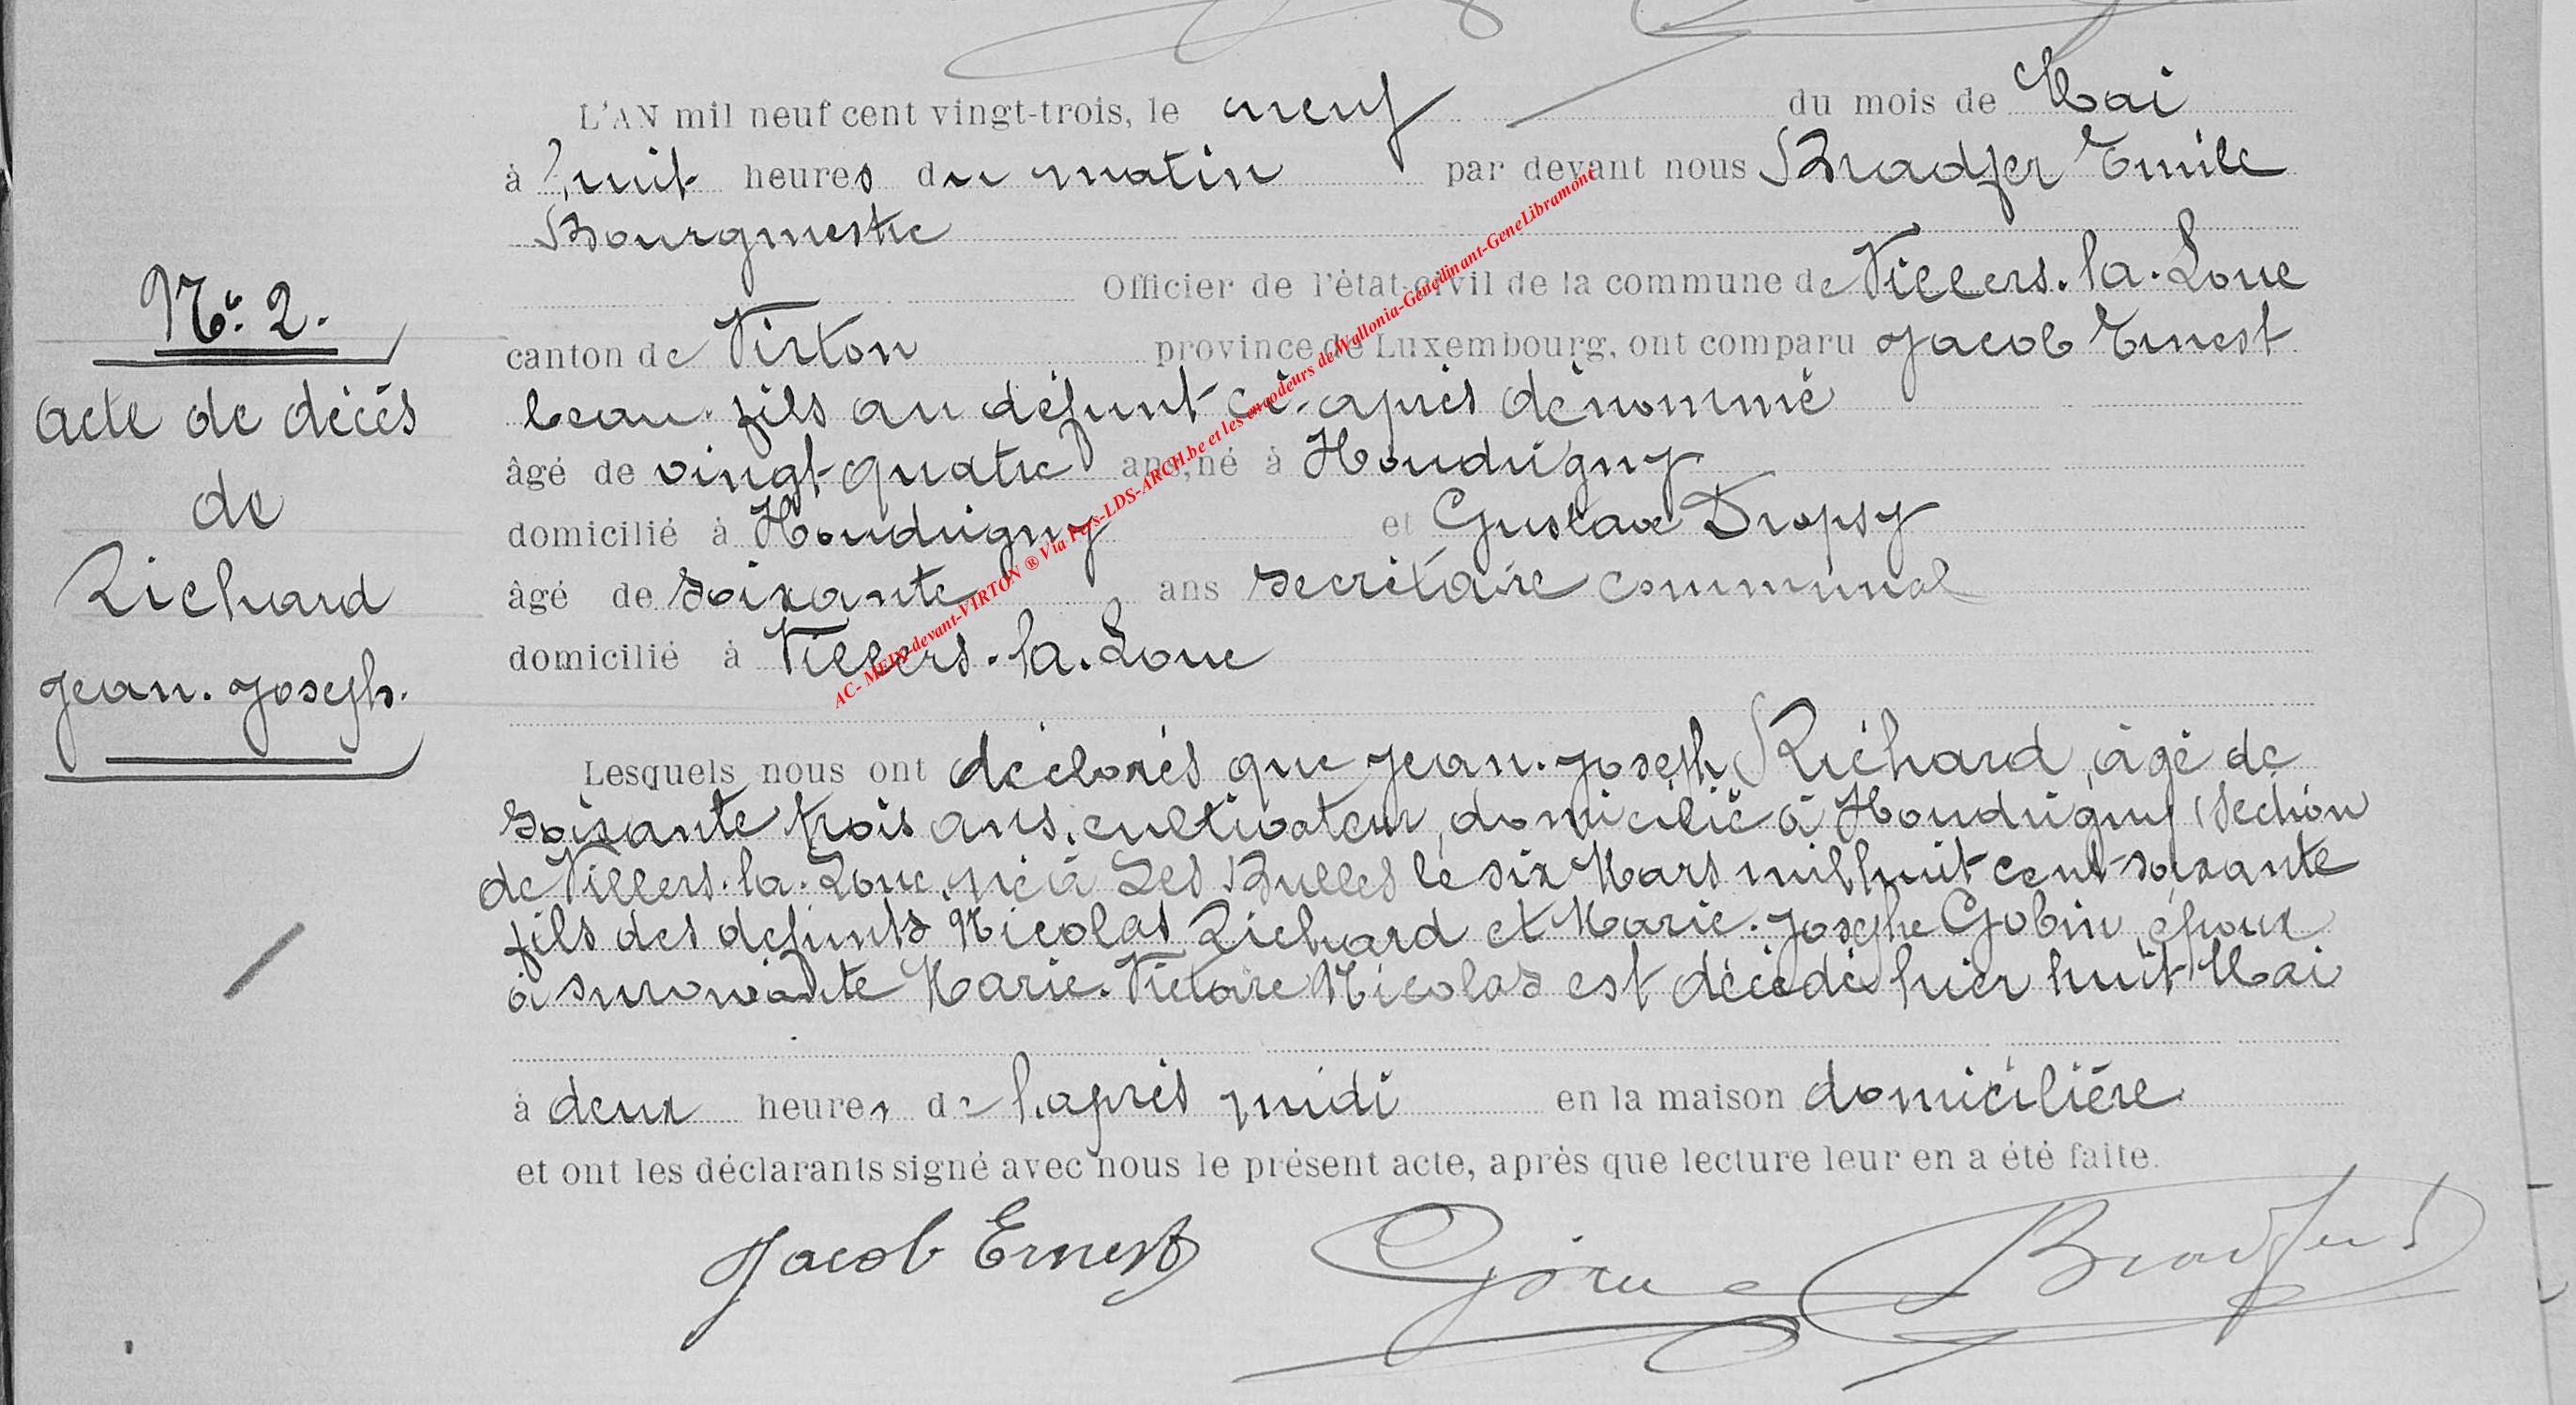 L'AN mil neuf cent vingt-trois, le neuf du mois de Mai
à huit heures du matin par devant nous Bradfer Emile
Bourgmestre
Officier de l'état-civil de la commune de Villers-la-Loue
canton de Virton province de Luxembourg, ont comparu Jacob Ernest
beau-fils au défunt ci-après dénommé
âgé de vingt-quatre ans, né à Houdrigny
domicilié à Houdrigny et Gustave Dropsy
âgé de soixante ans secrétaire communal
domicilié à Villers-la-Loue
Lesquels nous ont déclarés que Jean-Joseph Richard, âgé de
soixante trois ans, cultivateur, domicilié à Houdrigny (section
de Villers-la-Loue, né à Les Bulles le six Mars mil huit cent soixante
fils des defunts Nicolas Richard et Marie-Josephe Gobin, époux
à survivante Marie-Victoire Nicolas est décédé hier huit Mai
à deux heures de l'après midi en la maison domicilière
et ont les déclarants signé avec nous le présent acte, après que lecture leur en a été faite.
Jacob Ernest Bradfer
N° 2.
Acte de décès
de
Richard
Jean-Joseph.
AC- MEIX-devant-VIRTON ® Via Pers-LDS-ARCH.be et les encodeurs de Wallonia-Genedinant-GeneLibramont